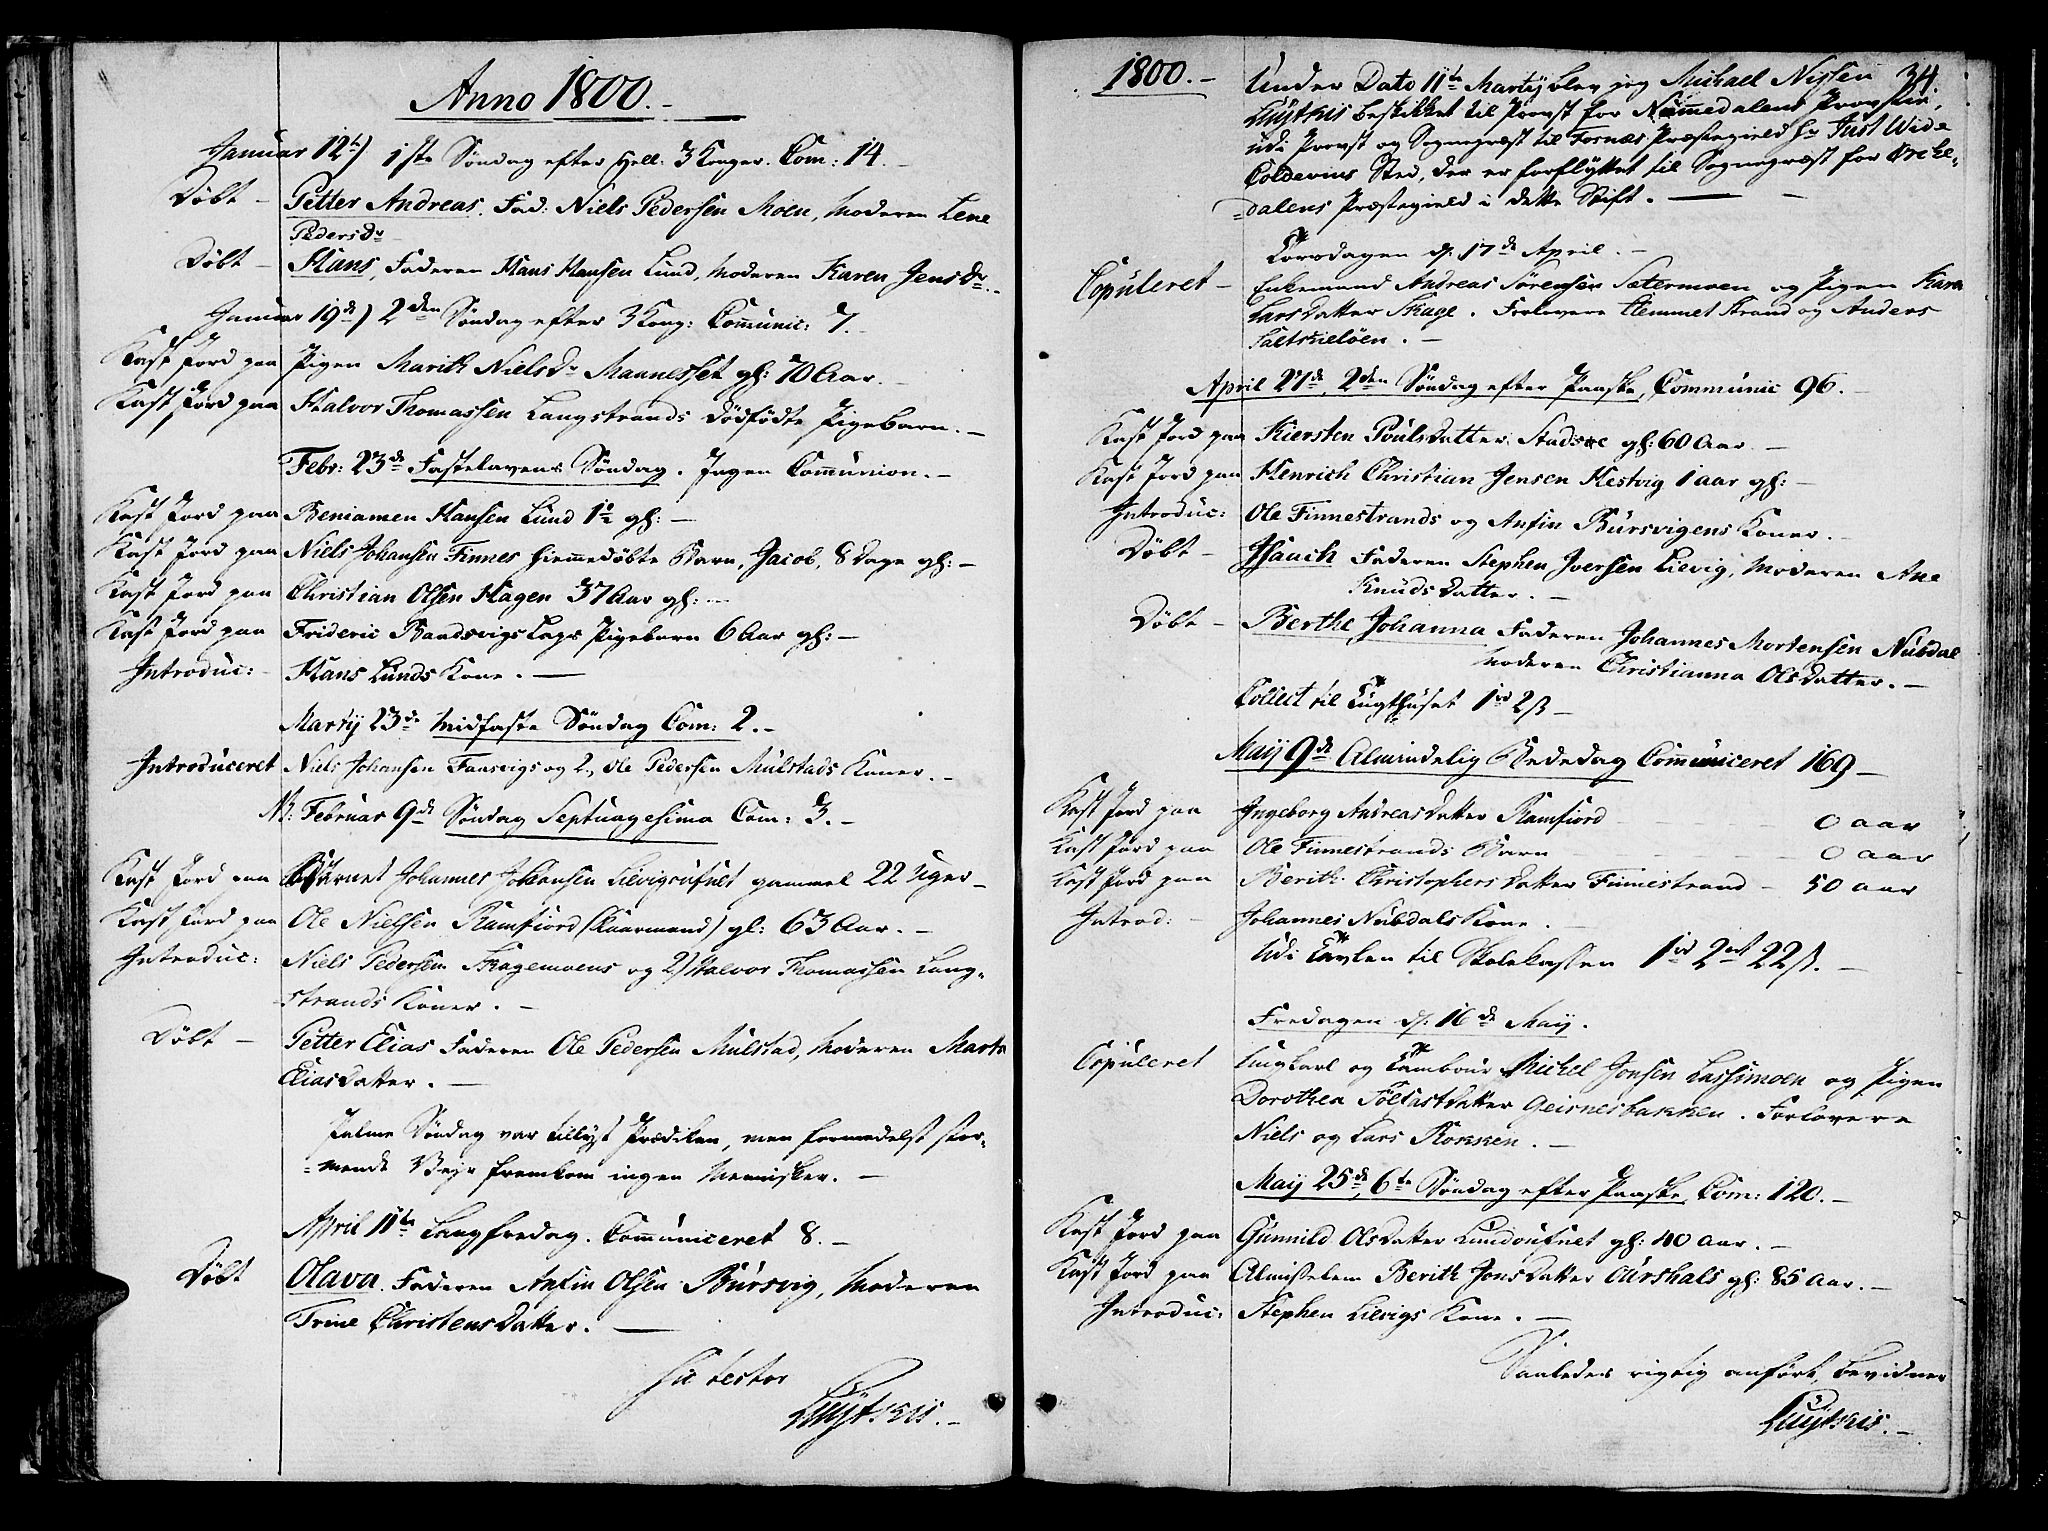 Anno 1800. -
Januar 12t) 1ste Søndag efter Hell: 3 Konger. Com: 14. -
Døbt - Petter Andreas. Fad: Niels Pedersen Moen, Moderen Lene
Pedersdr
Døbt - Hans, Faderen Hans Hansen Lund, Moderen Karen Jensdr. -
Januar 19de) 2den Søndag efter 3 Kong: Com̄unic: 7. -
Kast Jord paa Pigen Marith Nielsdr Mannesset gl: 70 Aar. -
Kast Jord paa Halvor Thomassen Langstrands dødfødte Pigebarn. -
Febr: 23de Fastelavens Søndag. Ingen Com̄union. -
Kast Jord paa Beniamen Hansen Lund gl: -
Kast Jord paa Niels Johansen Finnes hiem̄edøbte Barn, Jacob, 8 Dage gl: -
Kast Jord paa Christian Olsen Hagen 37 Aar gl: -
Kast Jord paa Frideric Bandsvigs Laps Pigebarn 6 Aar gl: -
Introduc: - Hans Lunds Kone. -
Martij 23de Midfaste Søndag Com: 2. -
Introduceret Niels Johansen Faasvigs og 2, Ole Pedersen Mülstads Koner. -
NB: Februar 9de Søndag Septuagesima Com: 3. -
Kast Jord paa Barnet Johannes Johansen Lievigsüfnet gammel 22 Uger -
Kast Jord paa Ole Nielsen Ramfiord (Kaarmand) gl: 63 Aar. -
Introduc: Niels Pedersen Skagemoens og 2) Halvor Thomassen Lang-
strands Koner. -
Døbt - Petter Elias Faderen Ole Pedersen Mülstad, Moderen Marta
Eliasdatter. -
Palme Søndag var tillyst Prædiken, men formedelst stor-
-mende Vejr fremkom ingen Mennisker. -
April 11te Langfredag. Com̄uniceret 8. -
Døbt Olava. Faderen Anfin Olsen Bürsvig, Moderen
Trine Christensdatter. -
Sic testor
Luÿtkis. -
1800. - 34
Under Dato 11te Martij blev jeg Michael Nissen
Luÿtkis beskikket til Provst for Nummedalens Provstie,
udi Provst og Sognepræst til Fosnæs Præstegield Hr Just Wide
Coldevins Sted, der er forflyttet til Sognepræst for Orke-
-dalens Præstegield i dette Stift. -
Torsdagen d. 17de April. -
Copuleret - Enkemand Andreas Sørensen Sætermoen og Pigen Karn
Larsdatter Skage. Forlovere Clemmet Strand og Anders
Saltskieløen. -
April 27de, 2den Søndag efter Paaske, Communic 96. -
Kast Jord paa Kiersten Poulsdatter Stadsøe gl: 60 Aar. -
Kast Jord paa Henrich Christian Jensen Hestvig 1 aar gl: -
Introduc: Ole Finnestrands og Anfin Bürsvigens Koner. -
Døbt - Isaach Faderen Stephen Joersen Lievig, Moderen Ane
Knudsdatter. -
Døbt - Berthe Johanna Faderen Johannes Mortensen Nübdal
Moderen Christianna Olsdatter. -
Collect til Tugthuset 1rd 2ß -
Maij 9de Almindelig Bededag Com̄uniceret 169 -
Kast Jord paa Ingeborg Andreasdatter Ramfiord 0 aar
Kast Jord paa Ole Finnestrands Barn 0 aar
Kast Jord paa Berith Christophersdatter Finnestrand - 50 aar
Introd: - Johannes Nübdals Kone. -
Udi Tavlen til Skolekassen 1rd 2ort 22ß. -
Fredagen d. 16de Maij.
Copuleret Ungkarl og Tambour Michel Jonsen Lassimoen og Pigen
Dorothea Tolfastdatter Geisnesbakken. Forlovere
Niels og Lars Rokken. -
Maij 25de, 6te Søndag efter Paaske, Com: 120. -
Kast Jord paa Günnild Olsdatter Lundsüfnet gl: 40 Aar. -
Kast Jord paa Almisselem Berith Jonsdatter Aürshals gl: 85 Aar. -
Introduc: Stephen Lievigs Kone. -
Saaledes rigtig anført, bevidner
Luÿtkis. -